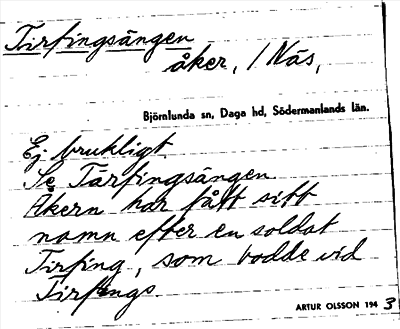 Tirfingsängen
åker, 1 Näs,
Björnlunda sn, Daga hd, Södermanlands län.
Ej brukligt.
Se Tärfingsängen
Åkern har fått sitt
namn efter en soldat
Tirfing, som bodde vid
Tirfings.
ARTUR OLSSON 1943